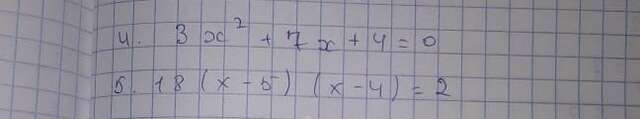 4. 3x² + 7x + 4 = 0
5. 18 (x - 5) (x - 4) = 2